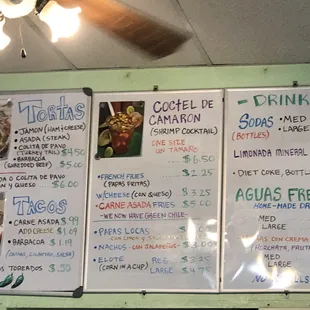 TORTAS
• JAMON (HAM & CHEESE)
• ASADA (STEAK)
• COLITA DE PAVO
(TURKEY TAIL) $4.50
• BARBACOA
(SHREDDED BEEF) $5.00
O COLITA DE PAVO
Y QUESO $6.00
TACOS
CARNE ASADA $.99
ADD CHEESE $1.09
• BARBACOA $1.19
(ONIONS, CILANTRO, SALSA)
TOREADOS $.50
COCTEL DE
CAMARON
(SHRIMP COCKTAIL)
ONE SIZE
UN TAMAÑO
$6.50
• FRENCH FRIES $2.25
(PAPAS FRITAS)
W/CHEESE (CON QUESO) $3.25
CARNE ASADA FRIES $5.00
- WE NOW HAVE GREEN CHILE -
• PAPAS LOCAS
• NACHOS
• ELOTE REG $2.25
(CORN IN A CUP) LARGE $4.75
- DRINK
SODAS • MED
(BOTTLES) • LARGE
LIMONADA MINERAL
• DIET COKE, BOTTLE
AGUAS FRE
HOME-MADE DR
MED
LARGE
AS CON CREMA
HORCHATA, FRUTA
MED
LARGE